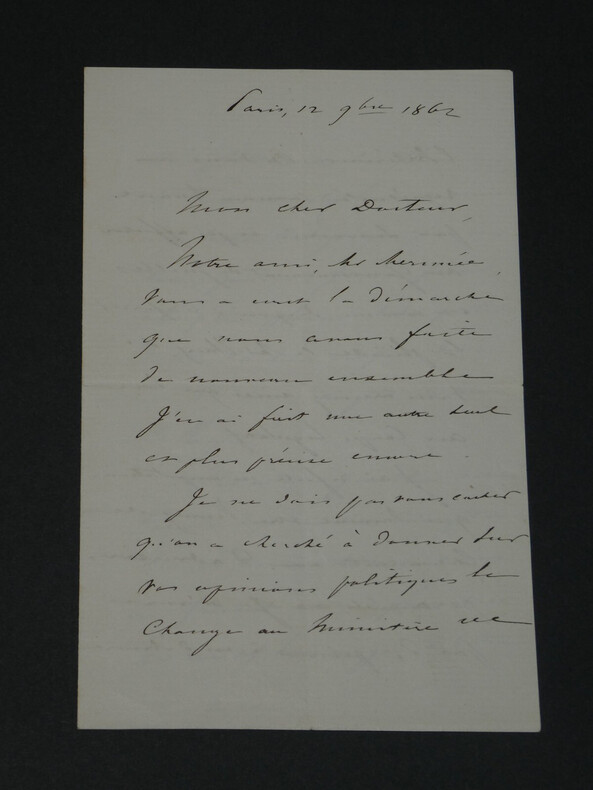 Paris, 12 9bre 1862
Mon cher Docteur,
Notre ami, Mr
Vous a écrit la démarche
que nous avons faite
de nouveau ensemble
J'en ai fait une autre seul
et plus précise encore.
Je ne dois pas vous cacher
qu'on a cherché à donner sur
vos opinions politiques le
Change au Ministère